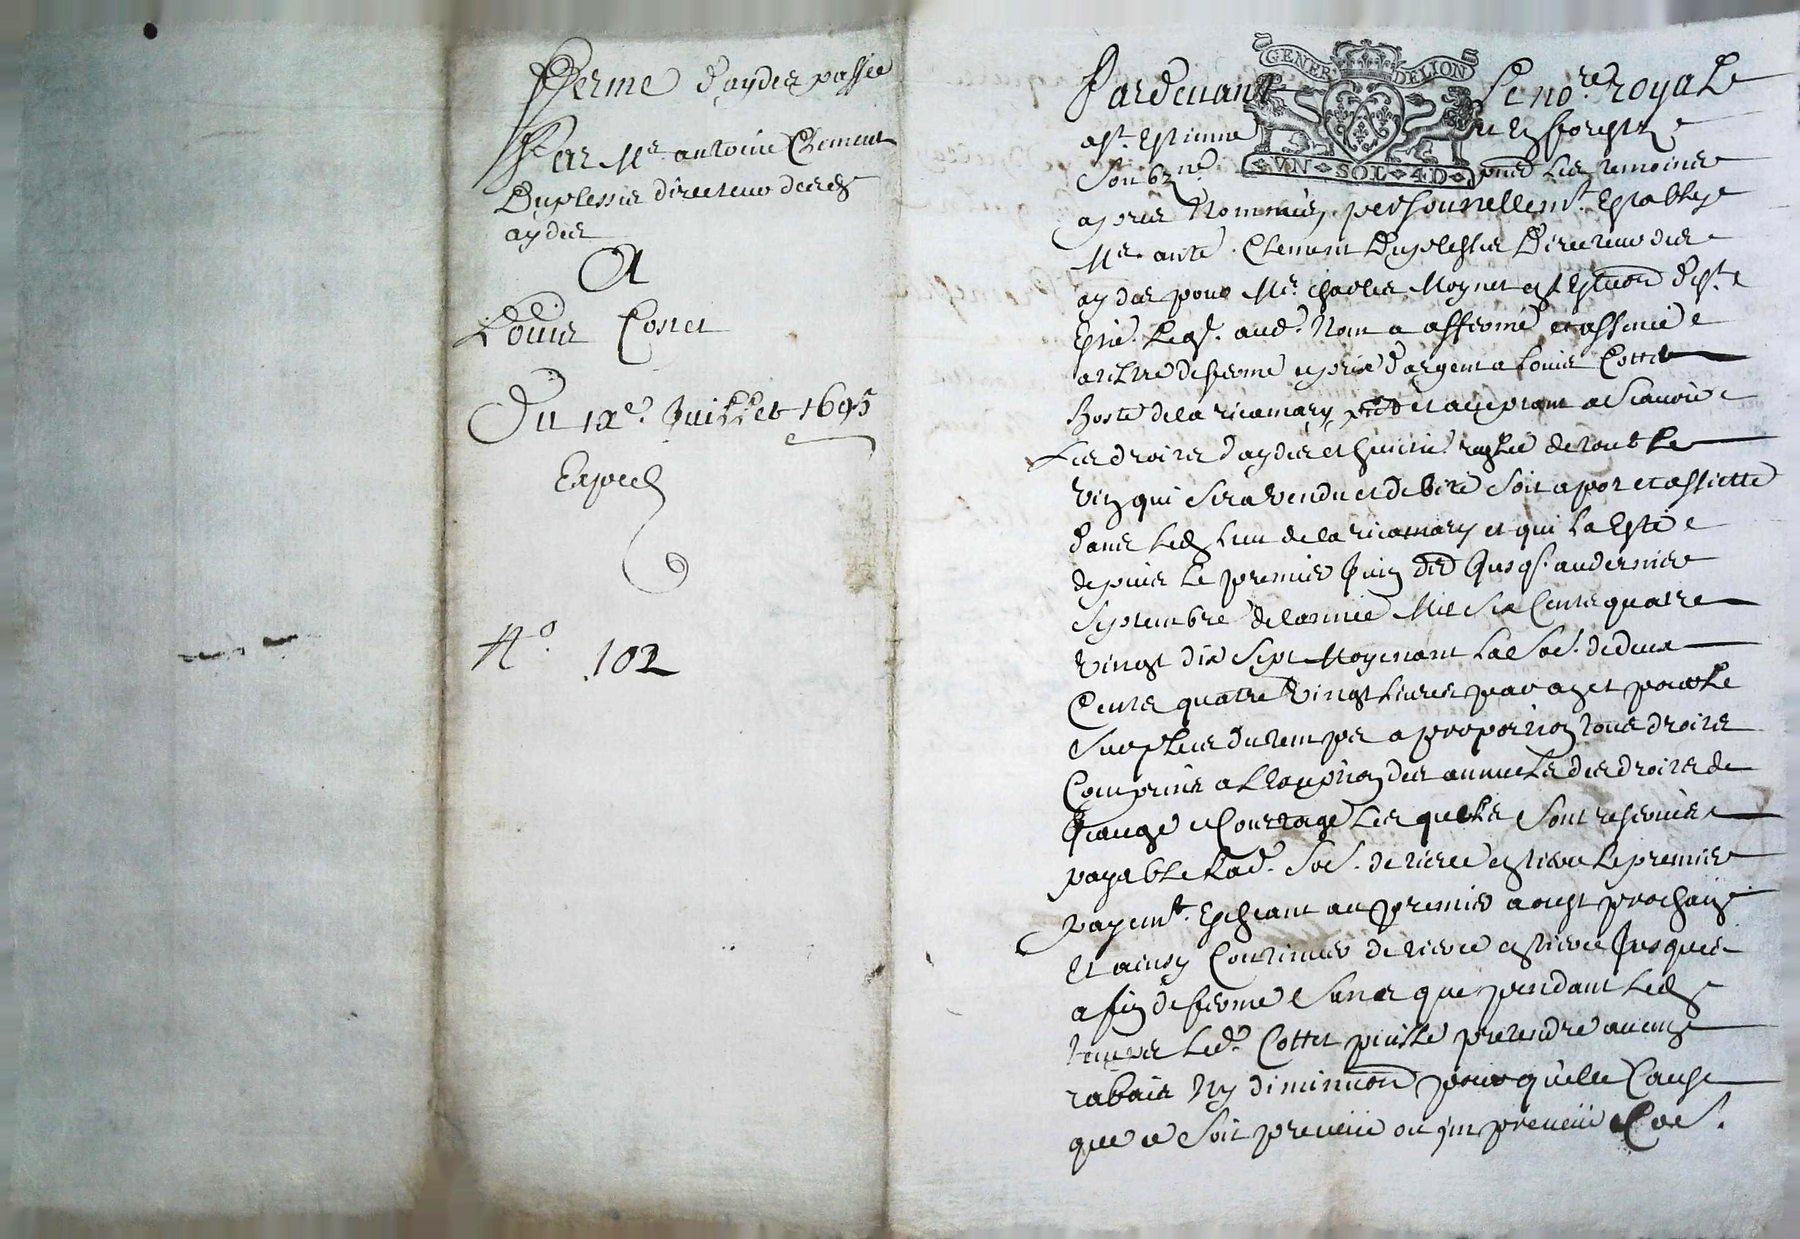 Ferme d'aydes passée
Par Mr. antoine Clement
Duplessis directeur desd
aydes
A
Louis Cottet
Du 12e. Juillet 1695
Exped
No. 102
GENER DELION
VN SOL 4D
Pardevant Le nore. royaL
a St. Estienne en forestz
Soubzne. pnts Les temoins
apres Nommés, personnellemt. Estably
Mr. antė. Clement Duplessis Directeur des
aydes pour Mr. charles Moynet en L'Eslion d'St.
Esne. Leql. aud. Nom a affermé et assencé
a tiltre de ferme e prix d'argent a Louis Cottet
hoste de la ricamary pnt et acceptant a Scauoir
Les droits d'aydes et huitie. reglé de tout Le
vin qui Sera vendu et debité Soit a pot et assiette
dans Led Lieu de la ricamary et qui L'a Esté
depuis Le premier Juin dr Jusqs. au dernier
Septembre de Lannée Mil Six Cents quatre
vingt dix Sept Moyenant La So͠e. de deux
Cents quatre vingt Liures par an et pour Le
Surplus du temps a proportion tous droits
Compris a L'exeption des annuels des droits de
Jauge e Courtage Lesquels Sont reserués
payable Lad. So͠e. de tiers en tiers Le premier
payemt. Escheant au premier aoust prochain
Et ainsy Continuer de tiers en tiers Jusques
a fin de ferme Sans que pendant Led
temps Led. Cottet puisse pretendre aucung
rabais Ny diminuon pour quelle Cause
que ce Soit preueüe ou jmpreueüe